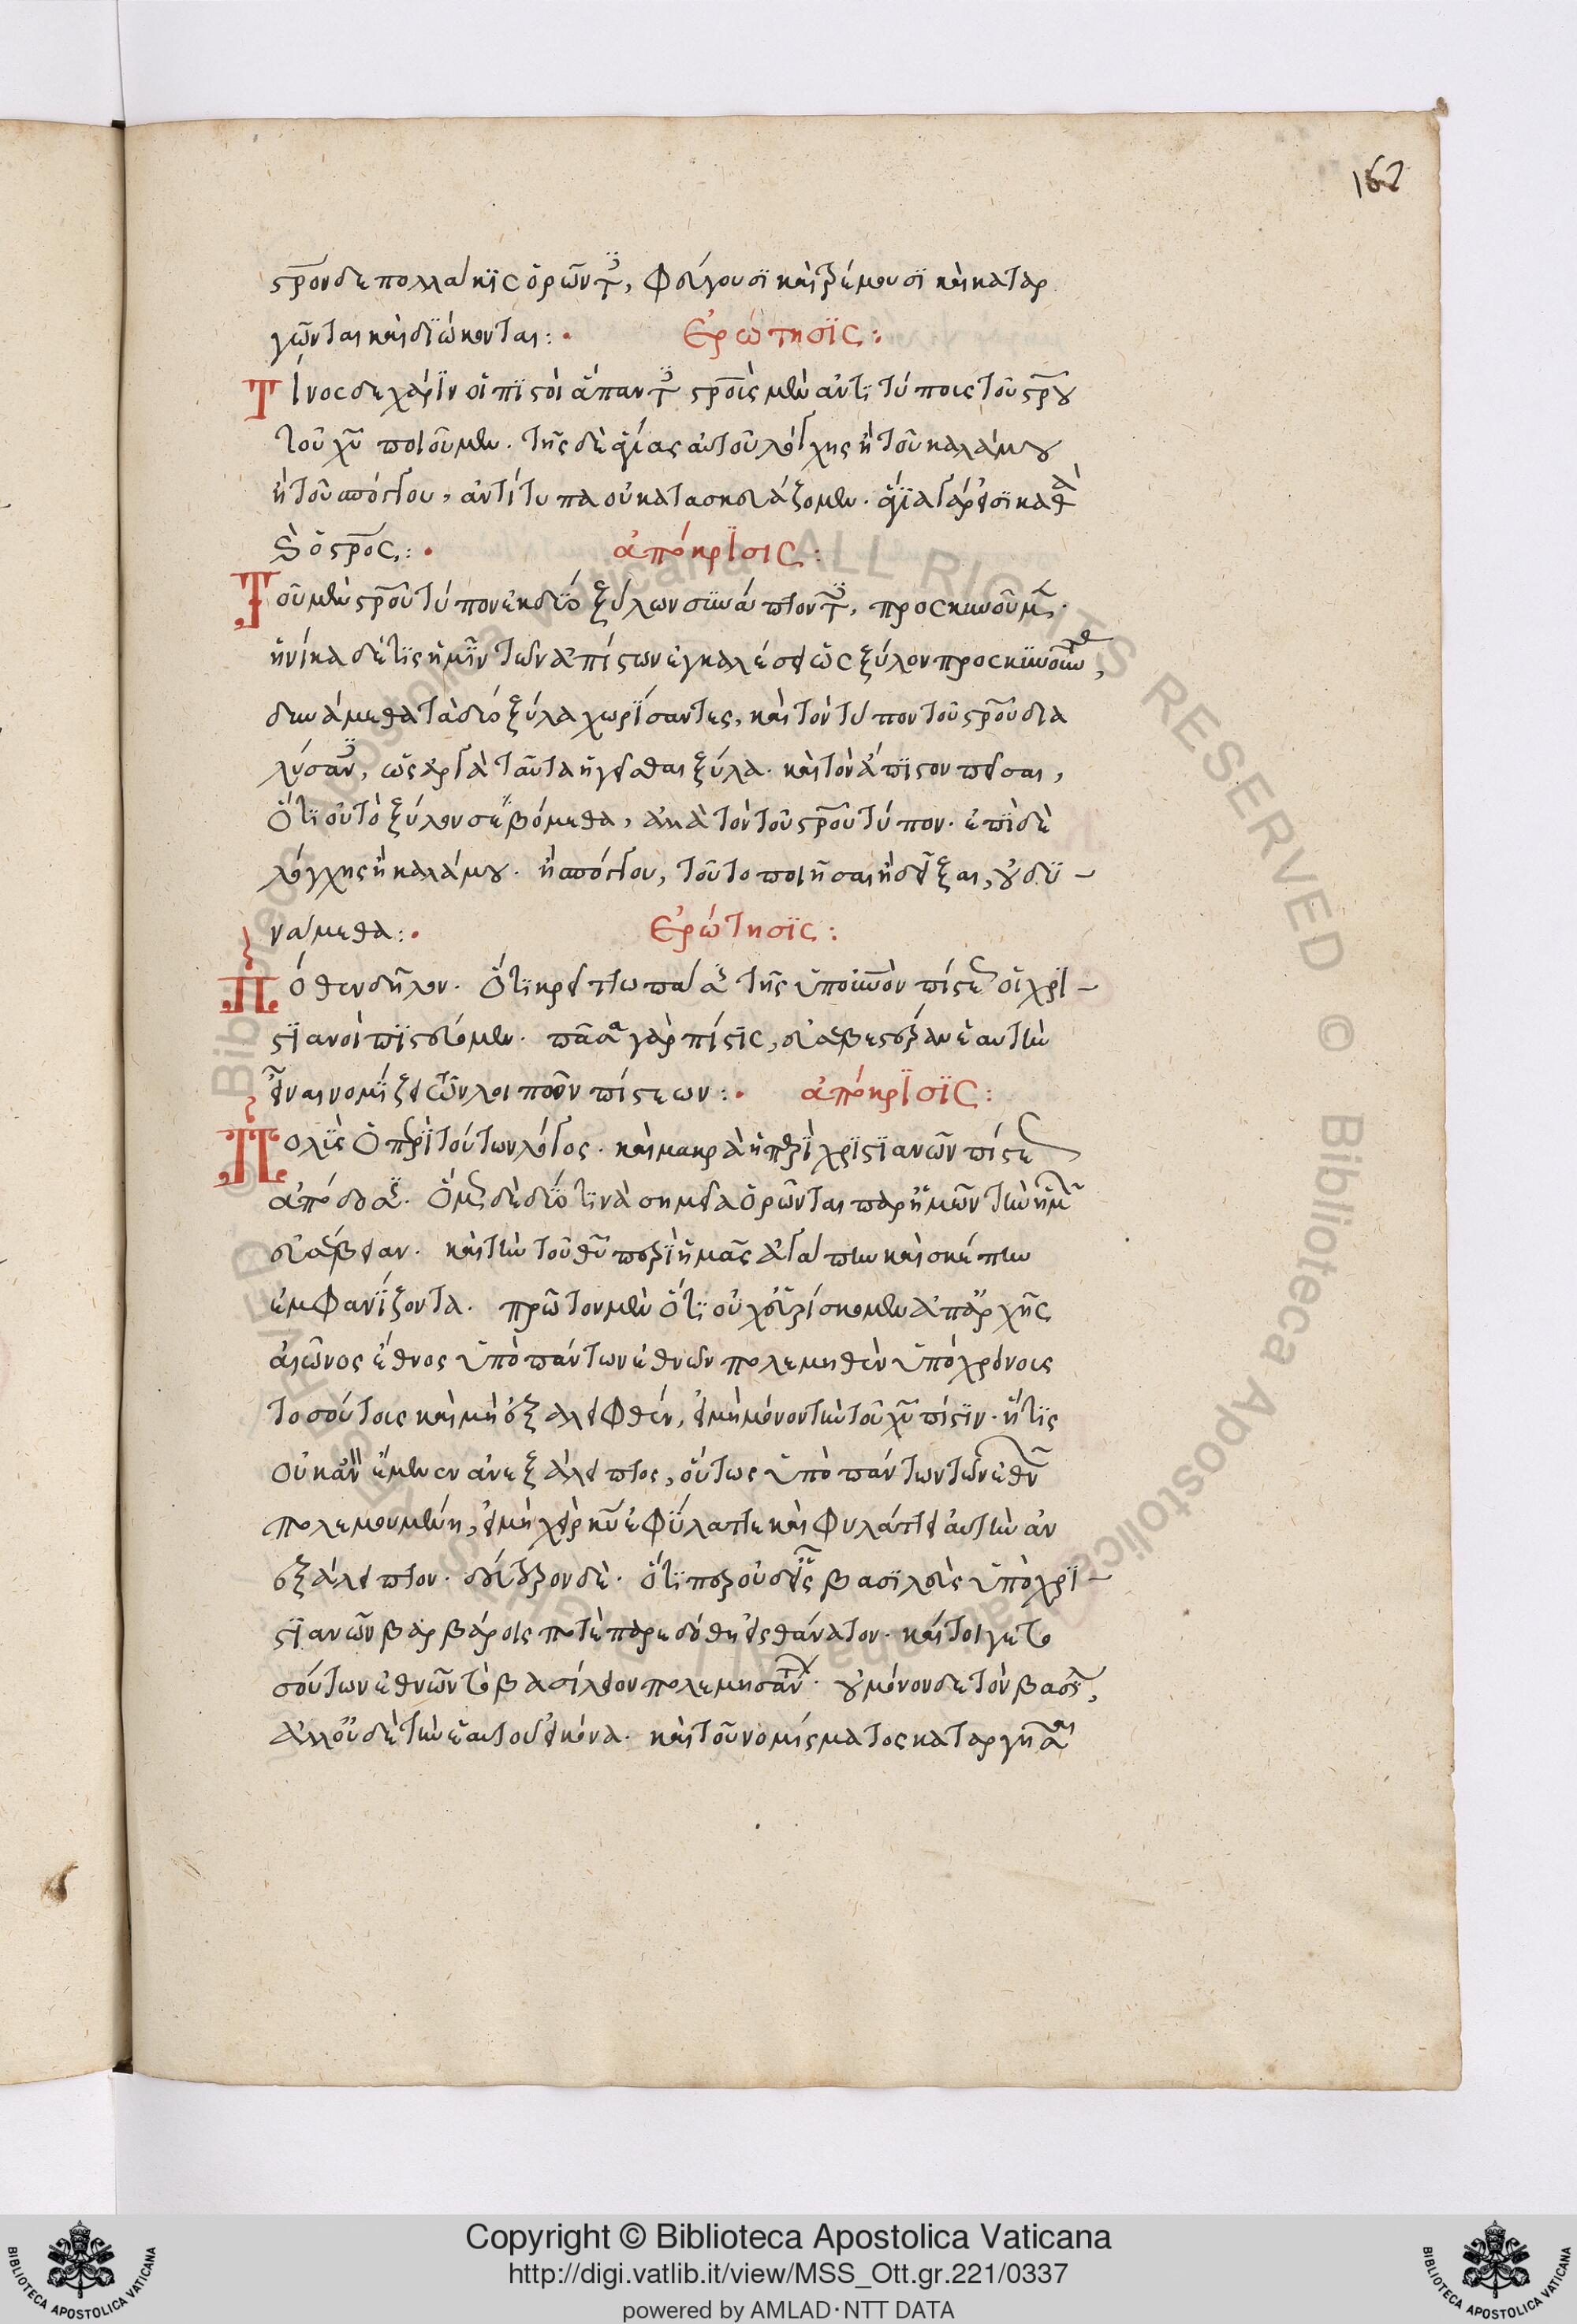 162
σρ̅ον δε πολλάκϊς ὁρῶντ(ες), φεύγουσϊ καὶ τρέμουσϊ καὶ καταρ
γῶνται καὶ δϊώκονται:·
Ἐρώτησϊς:
Τίνος δε χάρϊν οἱ πϊστοὶ ἅπαντ(ες) σρ̅οὺς μὲν ἀντιτύποις τοῦ σρ̅ου
τοῦ χυ̅ ποιοῦμεν. τῆς δὲ ἁγίας αὐτοῦ λόγχης ἢ τοῦ καλάμου
ἢ τοῦ σπόγγου, ἀντίτυπα οὐ κατασκευάζομεν. ἅγϊα γάρ εἰσϊ καθὰ
καὶ ὁ σρ̅ος:·
ἀπόκρϊσις:
Τοῦ μὲν σρ̅οῦ τύπον ἐκ δϋό ξύλων συνάπτοντ(ες), προσκυνοῦμ(εν).
ἡνίκα δέ τϊς ἡμῖν τῶν ἀπίστων ἐγκαλέσει ὡς ξύλον προσκυνοῦμεν,
δυνάμεθα τὰ δύο ξύλα χωρϊσαντες, καὶ τὸν τύπον τοῦ σρ̅οῦ δια
λύσαντ(ες), ὡς ἀργὰ ταῦτα ἡγεῖσθαι ξύλα. καὶ τὸν ἄπϊστον πεῖσαι,
ὅτϊ οὐ τὸ ξύλον σεβόμεθα, ἀλλὰ τὸν τοῦ σρ̅οῦ τύπον. ἐπὶ δὲ
λόγχης ἢ καλάμου. ἢ σπόγγου, τοῦτο ποιῆσαι ἢ δεῖξαι, οὐ δϋ
νάμεθα:·
Ἐρώτησϊς:
Πόθεν δῆλον. ὅτϊ κρείττω πάσ(ης) τῆς ὑπ' οὐνὸν πίστε(ως) οἱ χρϊ
στϊανοὶ πϊστεύομεν. πᾶσα γὰρ πίστϊς, εὐσεβεστέραν ἑαυτὴν
εἶναι νομίζει τῶν λοιποῦν πίστεων:·
ἀπόκρϊσϊς:
Πολὺς ὁ περὶ τούτων λόγος. καὶ μακρὰ ἡ περὶ χρϊστϊανῶν πίστε(ως)
ἀπόδοσ(ις). ὅμ(ως) δὲ δϋό τϊνὰ σημεῖα ὁρῶνται παρ' ἡμῶν τὴν ἡμ(ῶν)
εὐσέβειαν. καὶ τὴν τοῦ θυ̅ περὶ ἡμᾶς ἀγάπην καὶ σκέπην
ἐμφανΐζοντα. πρῶτον μὲν ὅτϊ οὐχ εὑρίσκομεν ἀπ' ἀρχῆς
αἰῶνος ἔθνος ὑπὸ πάντων ἐθνῶν πολεμηθὲν ὑπὸ χρόνοις
τοσούτοις καὶ μὴ ἐξαλειφθέν, εἰ μὴ μόνον τὴν τοῦ χυ̅ πίστϊν. ἥτϊς
οὐκ ἂν ἔμεινεν ἀνεξάλειπτος, οὕτως ὑπὸ πάντων τῶν ἐθν(ῶν)
πολεμουμένη, εἰ μὴ χεὶρ κυ̅ ἐφύλαττε καὶ φυλάττει αὐτὴν ἀν
εξάλειπτον. δεύτερον δὲ. ὅτϊπερ οὐδεὶς βασϊλεὺς ὑπὸ χρϊ
στϊανῶν βαρβάροις ποτὲ παρεδόθη εἰς θάνατον. καίτοιγε το
σούτων ἐθνῶν τὸ βασίλειον πολεμησάντ(ων). οὐ μόνον δε τὸν βασ(ιλέα),
ἀλλ' οὐδὲ τὴν ἑαυτοῦ εἰκόνα. καὶ τοῦ νομίσματος καταργῆσαι
Copyright © Biblioteca Apostolica Vaticana
http://digi.vatlib.it/view/MSS_Ott.gr.221/0337
powered by AMLAD·NTT DATA